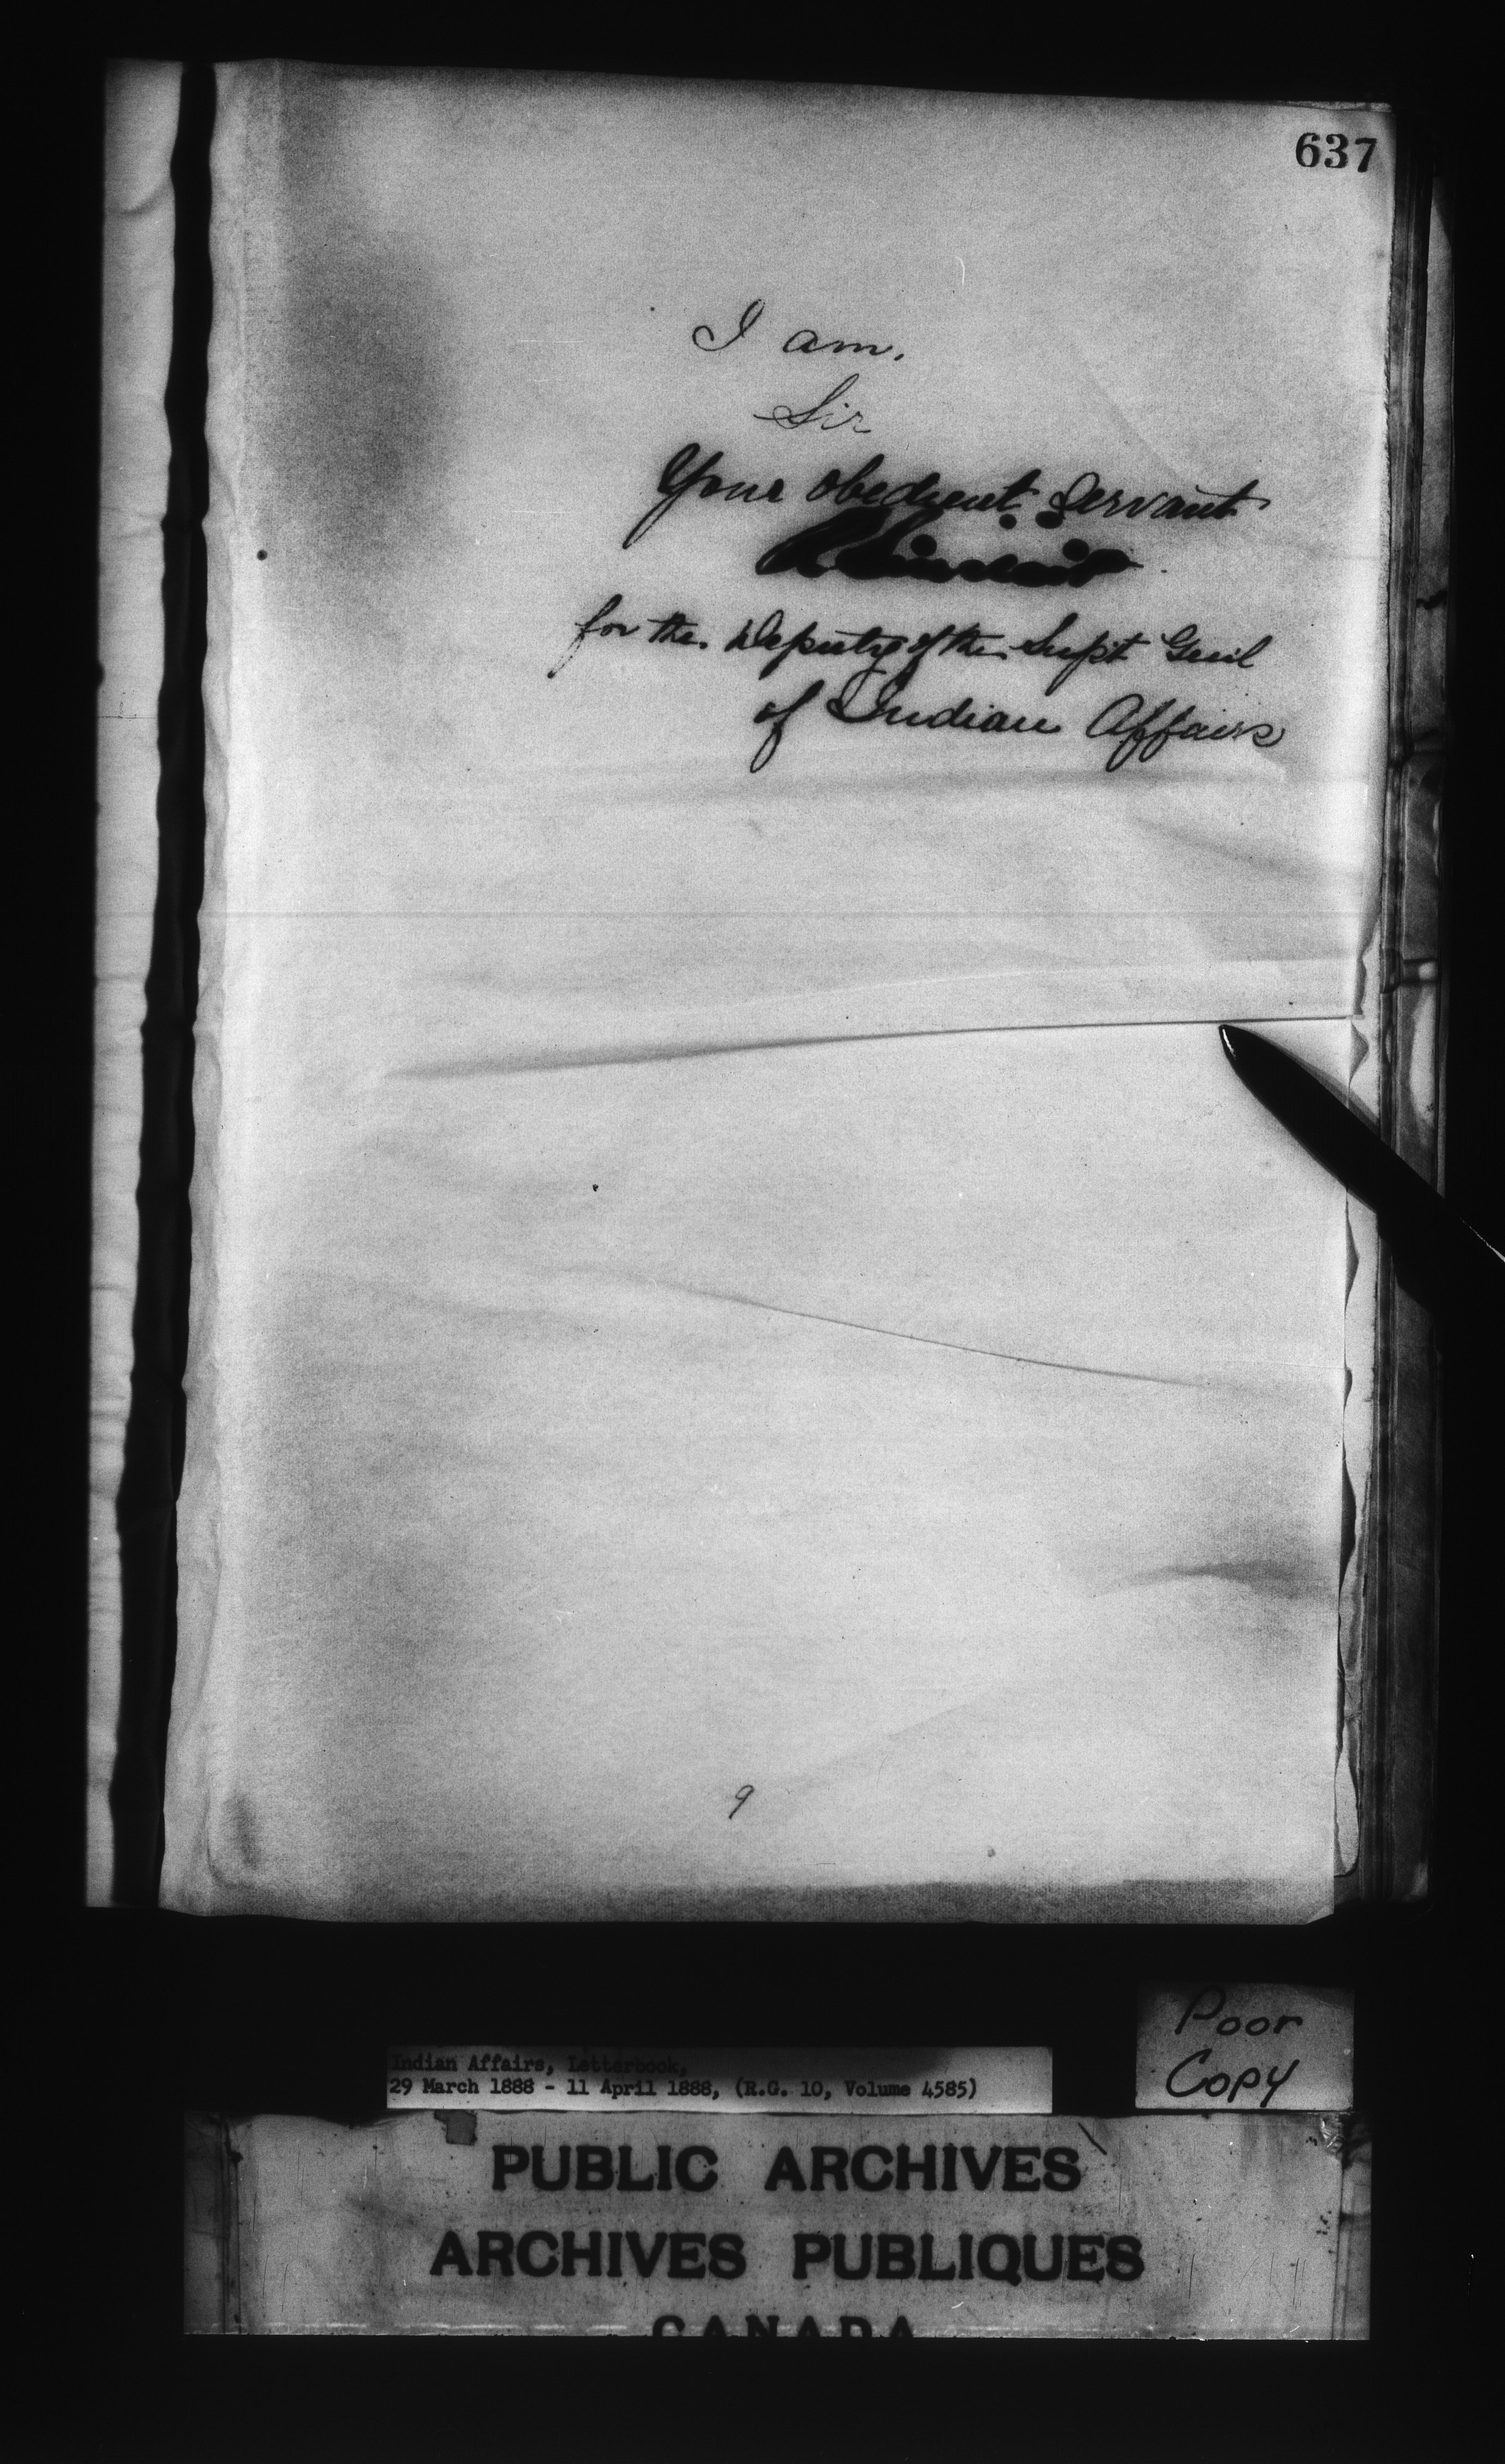 637
I am.
Sir
Your obedient Servant
for the Deputy of the Supt Genl
of Indian Affairs
9
Poor
Copy
Indian Affairs, Letterbook,
29 March 1888 - 11 April 1888, (R.G. 10, Volume 4585)
PUBLIC ARCHIVES
ARCHIVES PUBLIQUES
CANADA